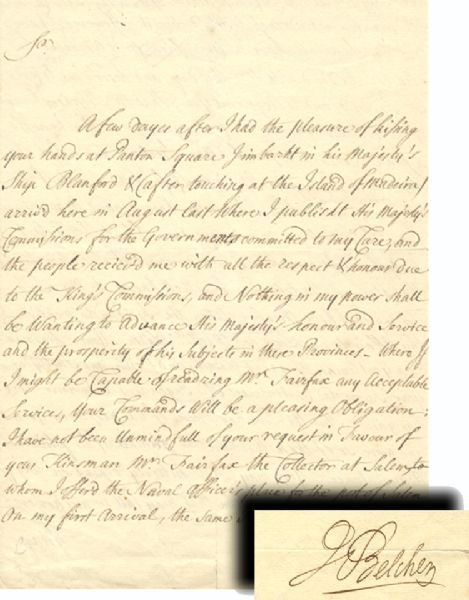 Sr.
A few dayes after I had the pleasure of kissing
your hands at Panton Square I imbarkt in his Majesty's
Ship Blanford & (after touching at the Island of Madeira)
arriv'd here in August last where I publisht His Majesty's
Commissions for the Governments committed to my Care, and
the people reciev'd me with all the respect & honour due
to the King's Commissions, and Nothing in my power shall
be Wanting to advance His Majesty's honour and Service
and the prosperity of his Subjects in these Provinces - Where If
I might be Capable of rendring Mr. Fairfax any Acceptable
Services, Your Commands Will be a pleasing Obligation:
I have not been Unmindfull of your request in Favour of
your Kinsman Mr. Fairfax the Collector at Salem, to
whom I offerd the Naval Office's place for the port of Salem
On my first Arrival, the same
J Belcher